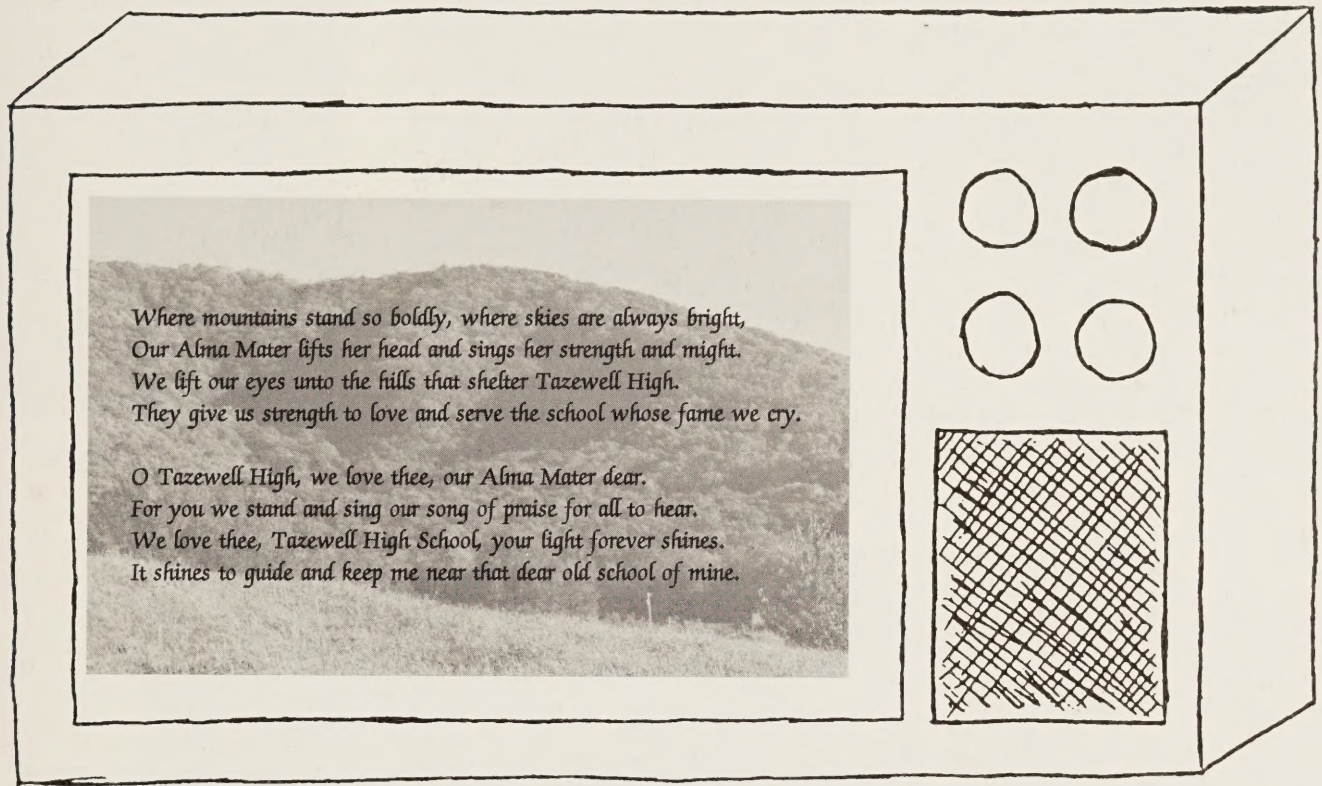 Where mountains stand so boldly, where skies are always bright,
Our Alma Mater lifts her head and sings her strength and might.
We lift our eyes unto the hills that shelter Tazewell High.
They give us strength to love and serve the school whose fame we cry.
O Tazewell High, we love thee, our Alma Mater dear.
For you we stand and sing our song of praise for all to hear.
We love thee, Tazewell High School, your light forever shines.
It shines to guide and keep me near that dear old school of mine.